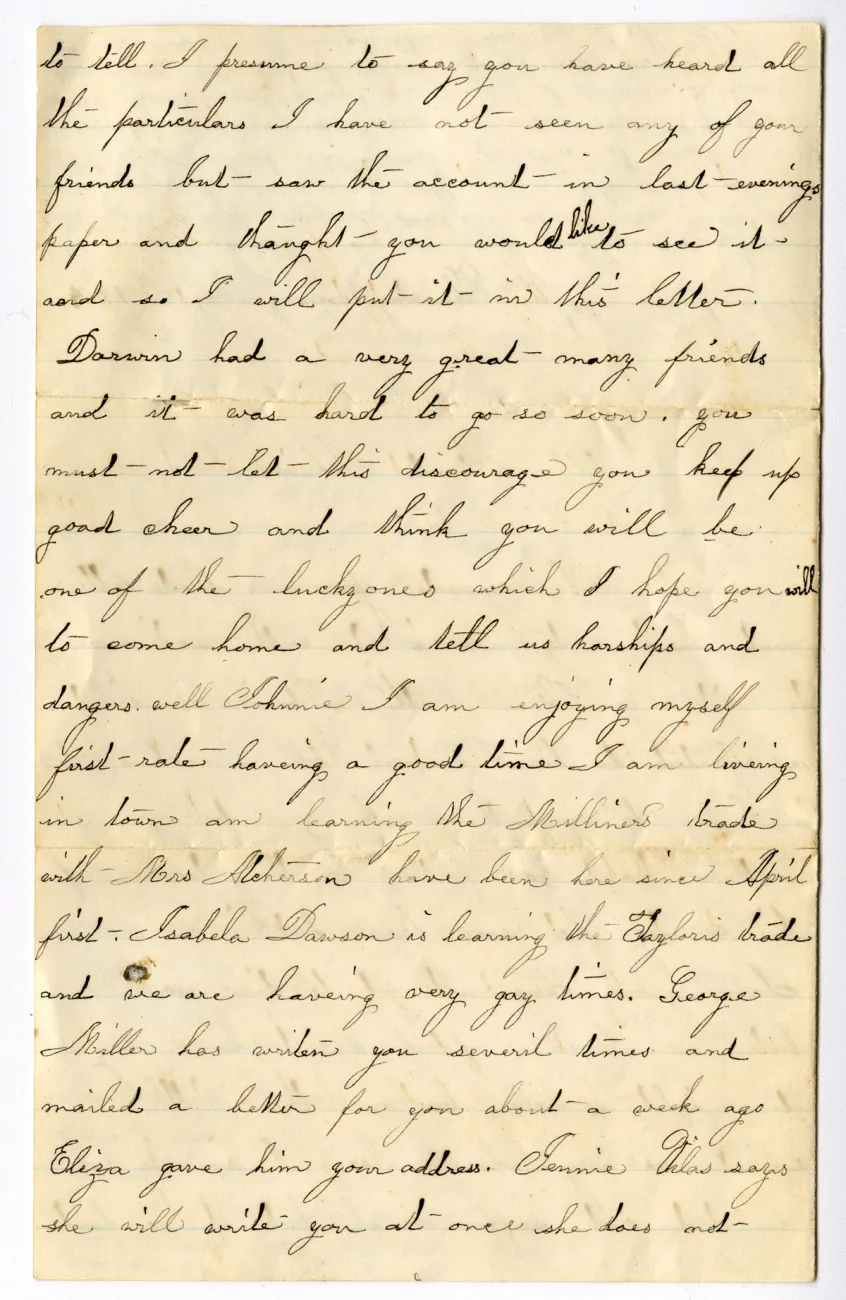 to tell. I presume to say you have heard all
the particulars I have not seen any of your
friends but saw the account in last evenings
paper and thought you would like to see it
and so I will put it in this letter.
Darwin had a very great many friends
and it was hard to go so soon. you
must not let this discourage you keep up
good cheer and think you will be
one of the lucky ones which I hope you will
to come home and tell us harships and
dangers. well Johnnie I am enjoying myself
first-rate haveing a good time I am liveing
in town am learning the Milliner's trade
with Mrs have been here since April
first. Isabela Dawson is learning the Taylor's trade
and we are haveing very gay times. George
Miller has writen you severil times and
mailed a letter for you about a week ago
Eliza gave him your address. Jennie says
she will write you at once she does not